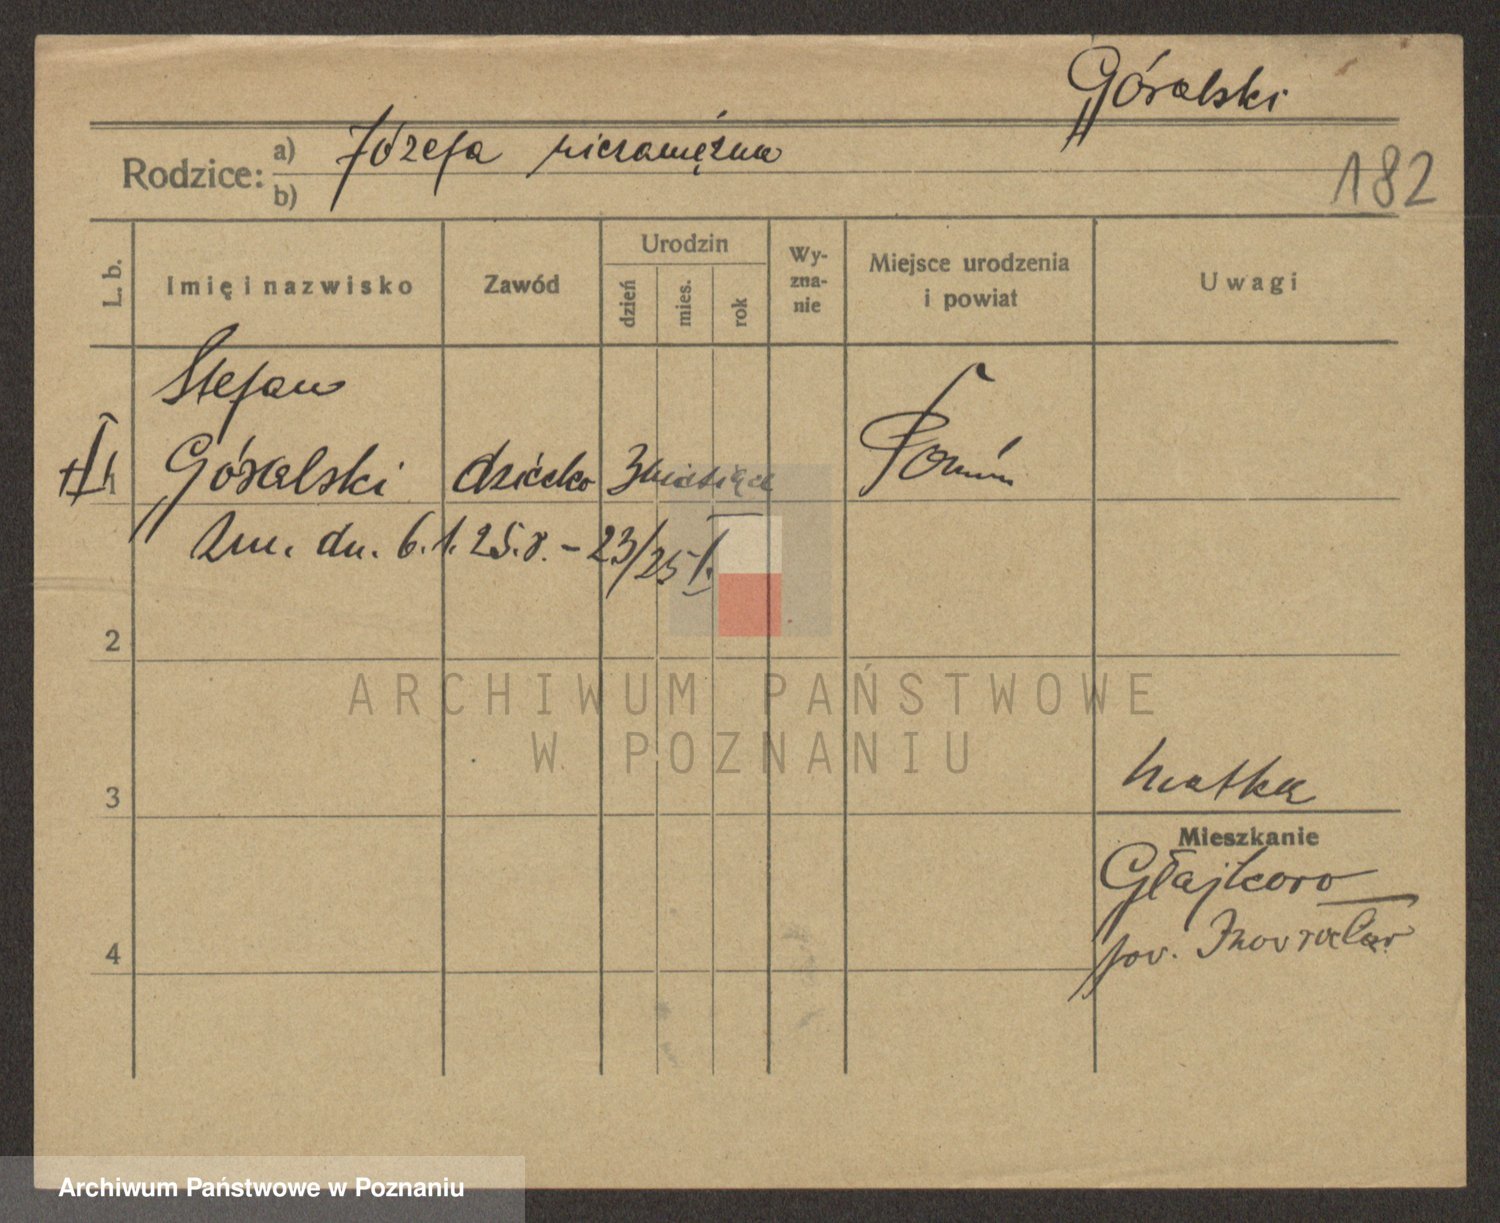 Góralski
Rodzice: a) Józefa niezamężna
b)
182
L. b.
Imię i nazwisko
Zawód
Urodzin
dzień
mies.
rok
Wy-
zna-
nie
Miejsce urodzenia
i powiat
Uwagi
Stefan
1 Góralski dziecko 3 miesiące
Zm. dn. 6.1.25.r. – 23/25 I.
2
ARCHIWUM PAŃSTWOWE
W POZNANIU
3
matka
Mieszkanie
pow. Inowrocław
4
Archiwum Państwowe w Poznaniu